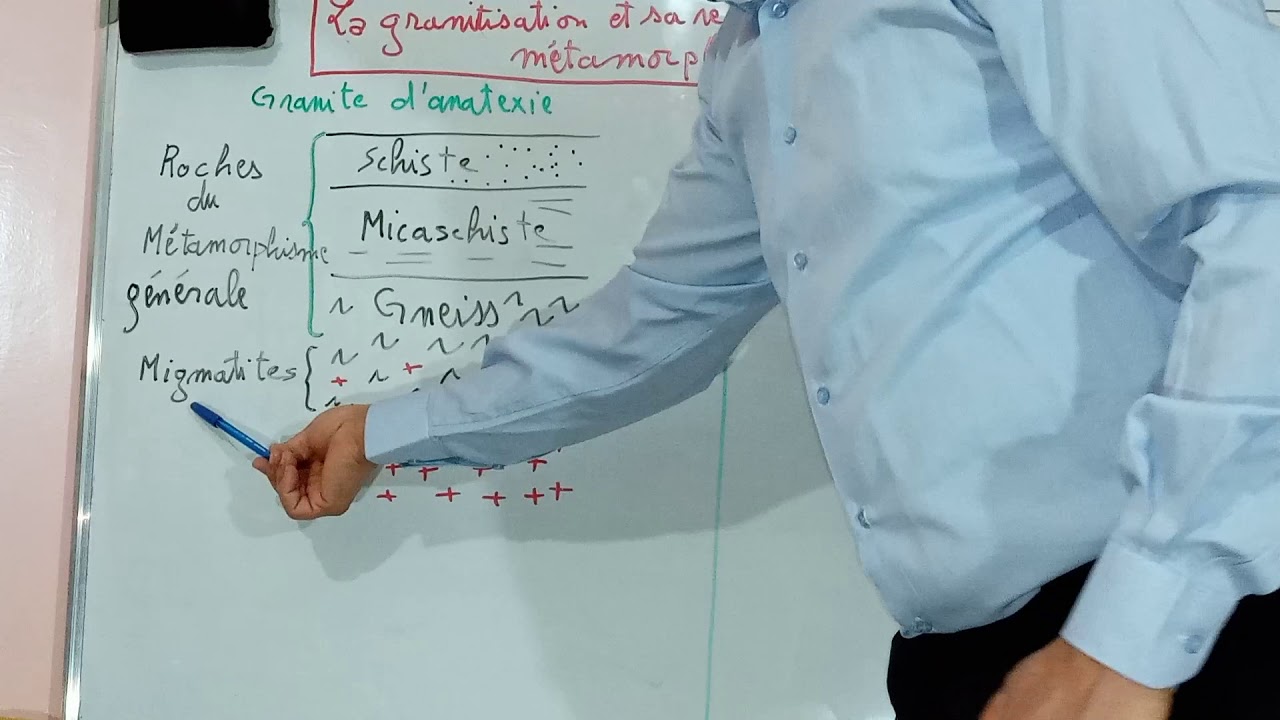 La granitisation et sa
métamorp
Granite d'anatexie
Roches
du
Métamorphisme
générale
Schiste
Micaschiste
Gneiss
Migmatites